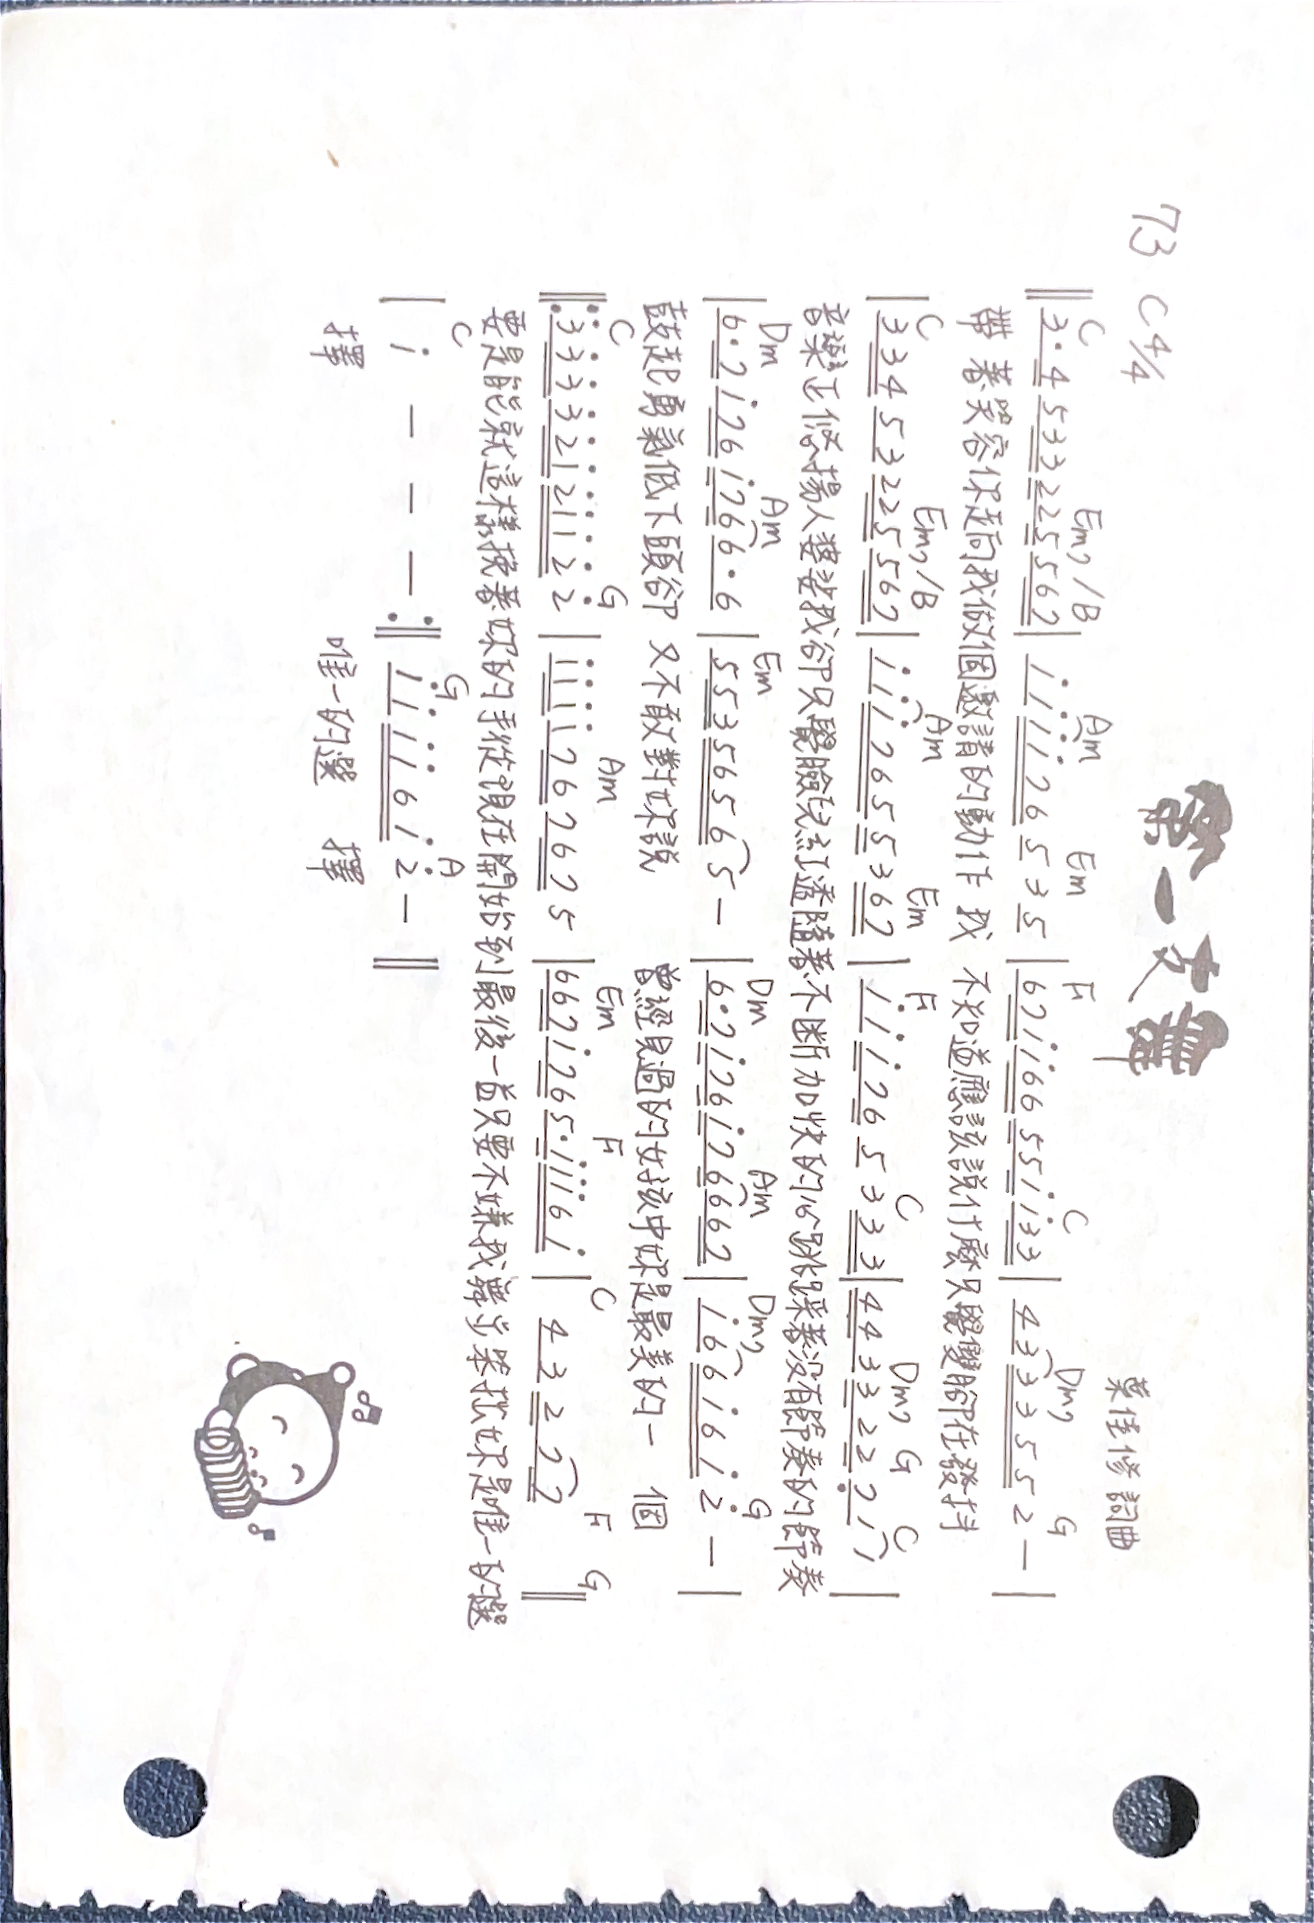 第一支舞
73 C 4/4
葉佳修 詞曲
C Em7/B Am Em F C Dm7 G
‖ 3·4 533 225 567 | i i i i 7 6 5 3 5 | 6 7 i i 6 6 5 5 i i 3 3 | 4 3 3 3 5 5 2 — |
帶著笑容你走向我做個邀請的動作 我 不知道應該說什麼只覺雙腳在發抖
C Em7/B Am Em F C Dm7 G C
| 334 53 225 567 | i i i 7 6 5 5 3 6 7 | i i i 7 6 5 3 3 3 | 4 4 3 3 2 2 7̣ 1 1 |
音樂正悠揚人婆娑我卻只覺臉兒紅透隨著不断加快的心跳踩著没有節奏的節奏
Dm Am Em Dm Am Dm7 G
| 6·7 i 7 6 i 7 6 6·6 | 5 5 3 5 6 5 6 5 — | 6·7 i 7 6 i 7 6 6 6 7 | i 6 6 i 6 i 2̇ — |
鼓起勇氣低下頭卻 又不敢對妳說 曾經見過的女孩中妳是最美的一 個
C G Am Em F C F G
‖: 3̇ 3̇ 3̇ 3̇ 2̇ i 2̇ i i 2̇ 2̇ | i i i i 7 6 7 6 7 5 | 6 6 7 i 7 6 5·i i i 6 i | 4 3 2 7 7 ‖
要是能就這樣挽著妳的手從現在開始到最後一直只要不嫌我舞步笨拙妳是唯一的選
C G A
| i — — — :‖ i i i i 6 i 2̇ — ‖
擇 唯一的選 擇